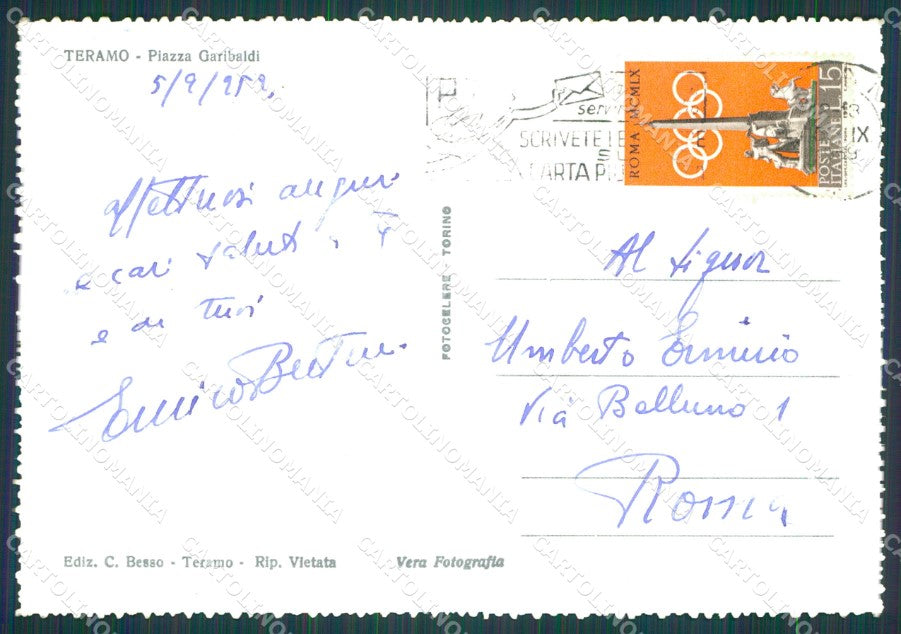 TERAMO - Piazza Garibaldi
5/9/959,
affettuosi auguri
e cari saluti a Te
e ai tuoi
Enrico
SCRIVETE LE
CARTA PI
ROMA MCMLIX
POSTE
ITALIANE L. 15
FOTOCELERE - TORINO
Al Signor
Umberto Erminio
Via Belluno 1
Roma
Ediz. C. Besso - Teramo - Rip. Vietata
Vera Fotografia
CARTOLINOMANIA